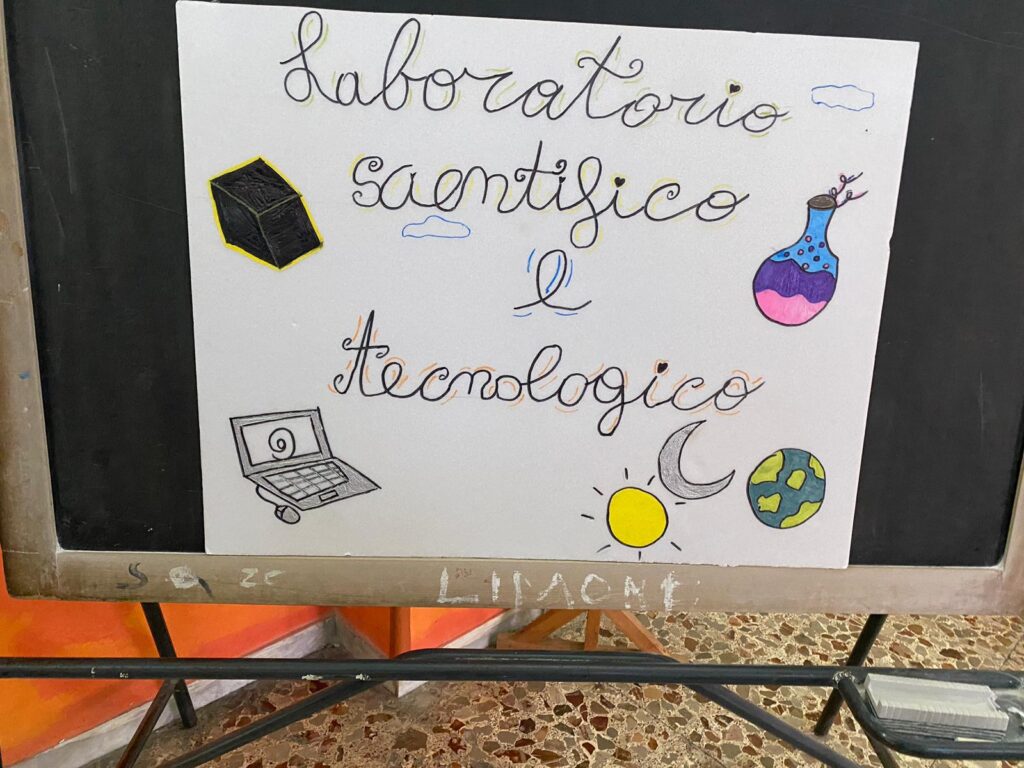 Laboratorio
scientifico
e
tecnologico